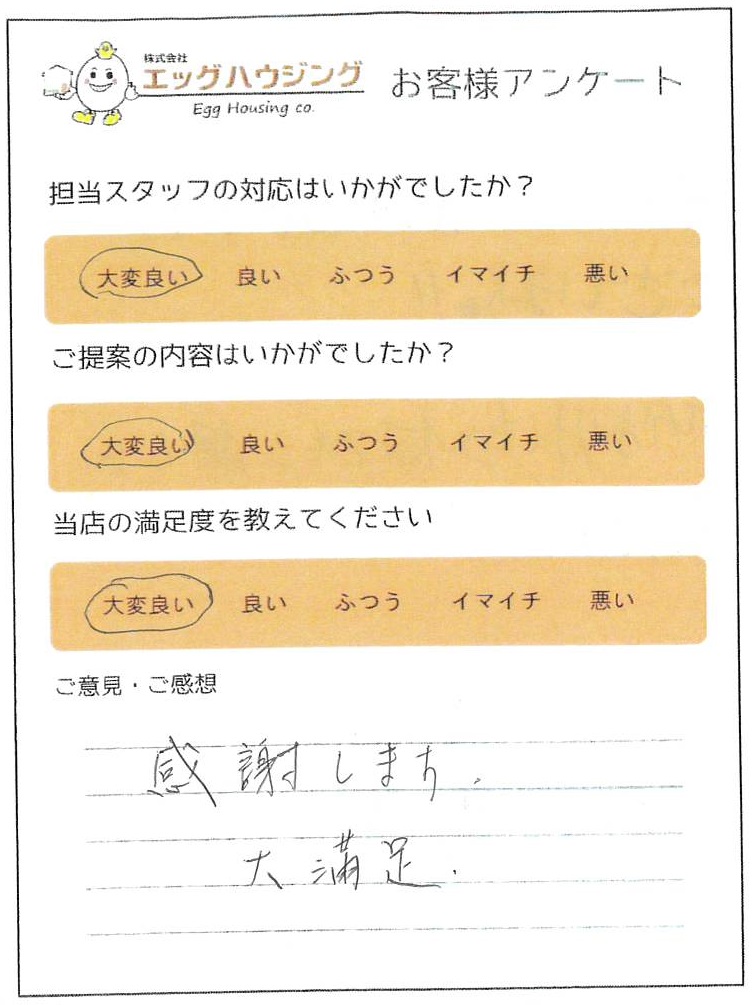 株式会社
エッグハウジング お客様アンケート
Egg Housing co.
担当スタッフの対応はいかがでしたか？
大変良い 良い ふつう イマイチ 悪い
ご提案の内容はいかがでしたか？
大変良い 良い ふつう イマイチ 悪い
当店の満足度を教えてください
大変良い 良い ふつう イマイチ 悪い
ご意見・ご感想
感謝します.
大満足.